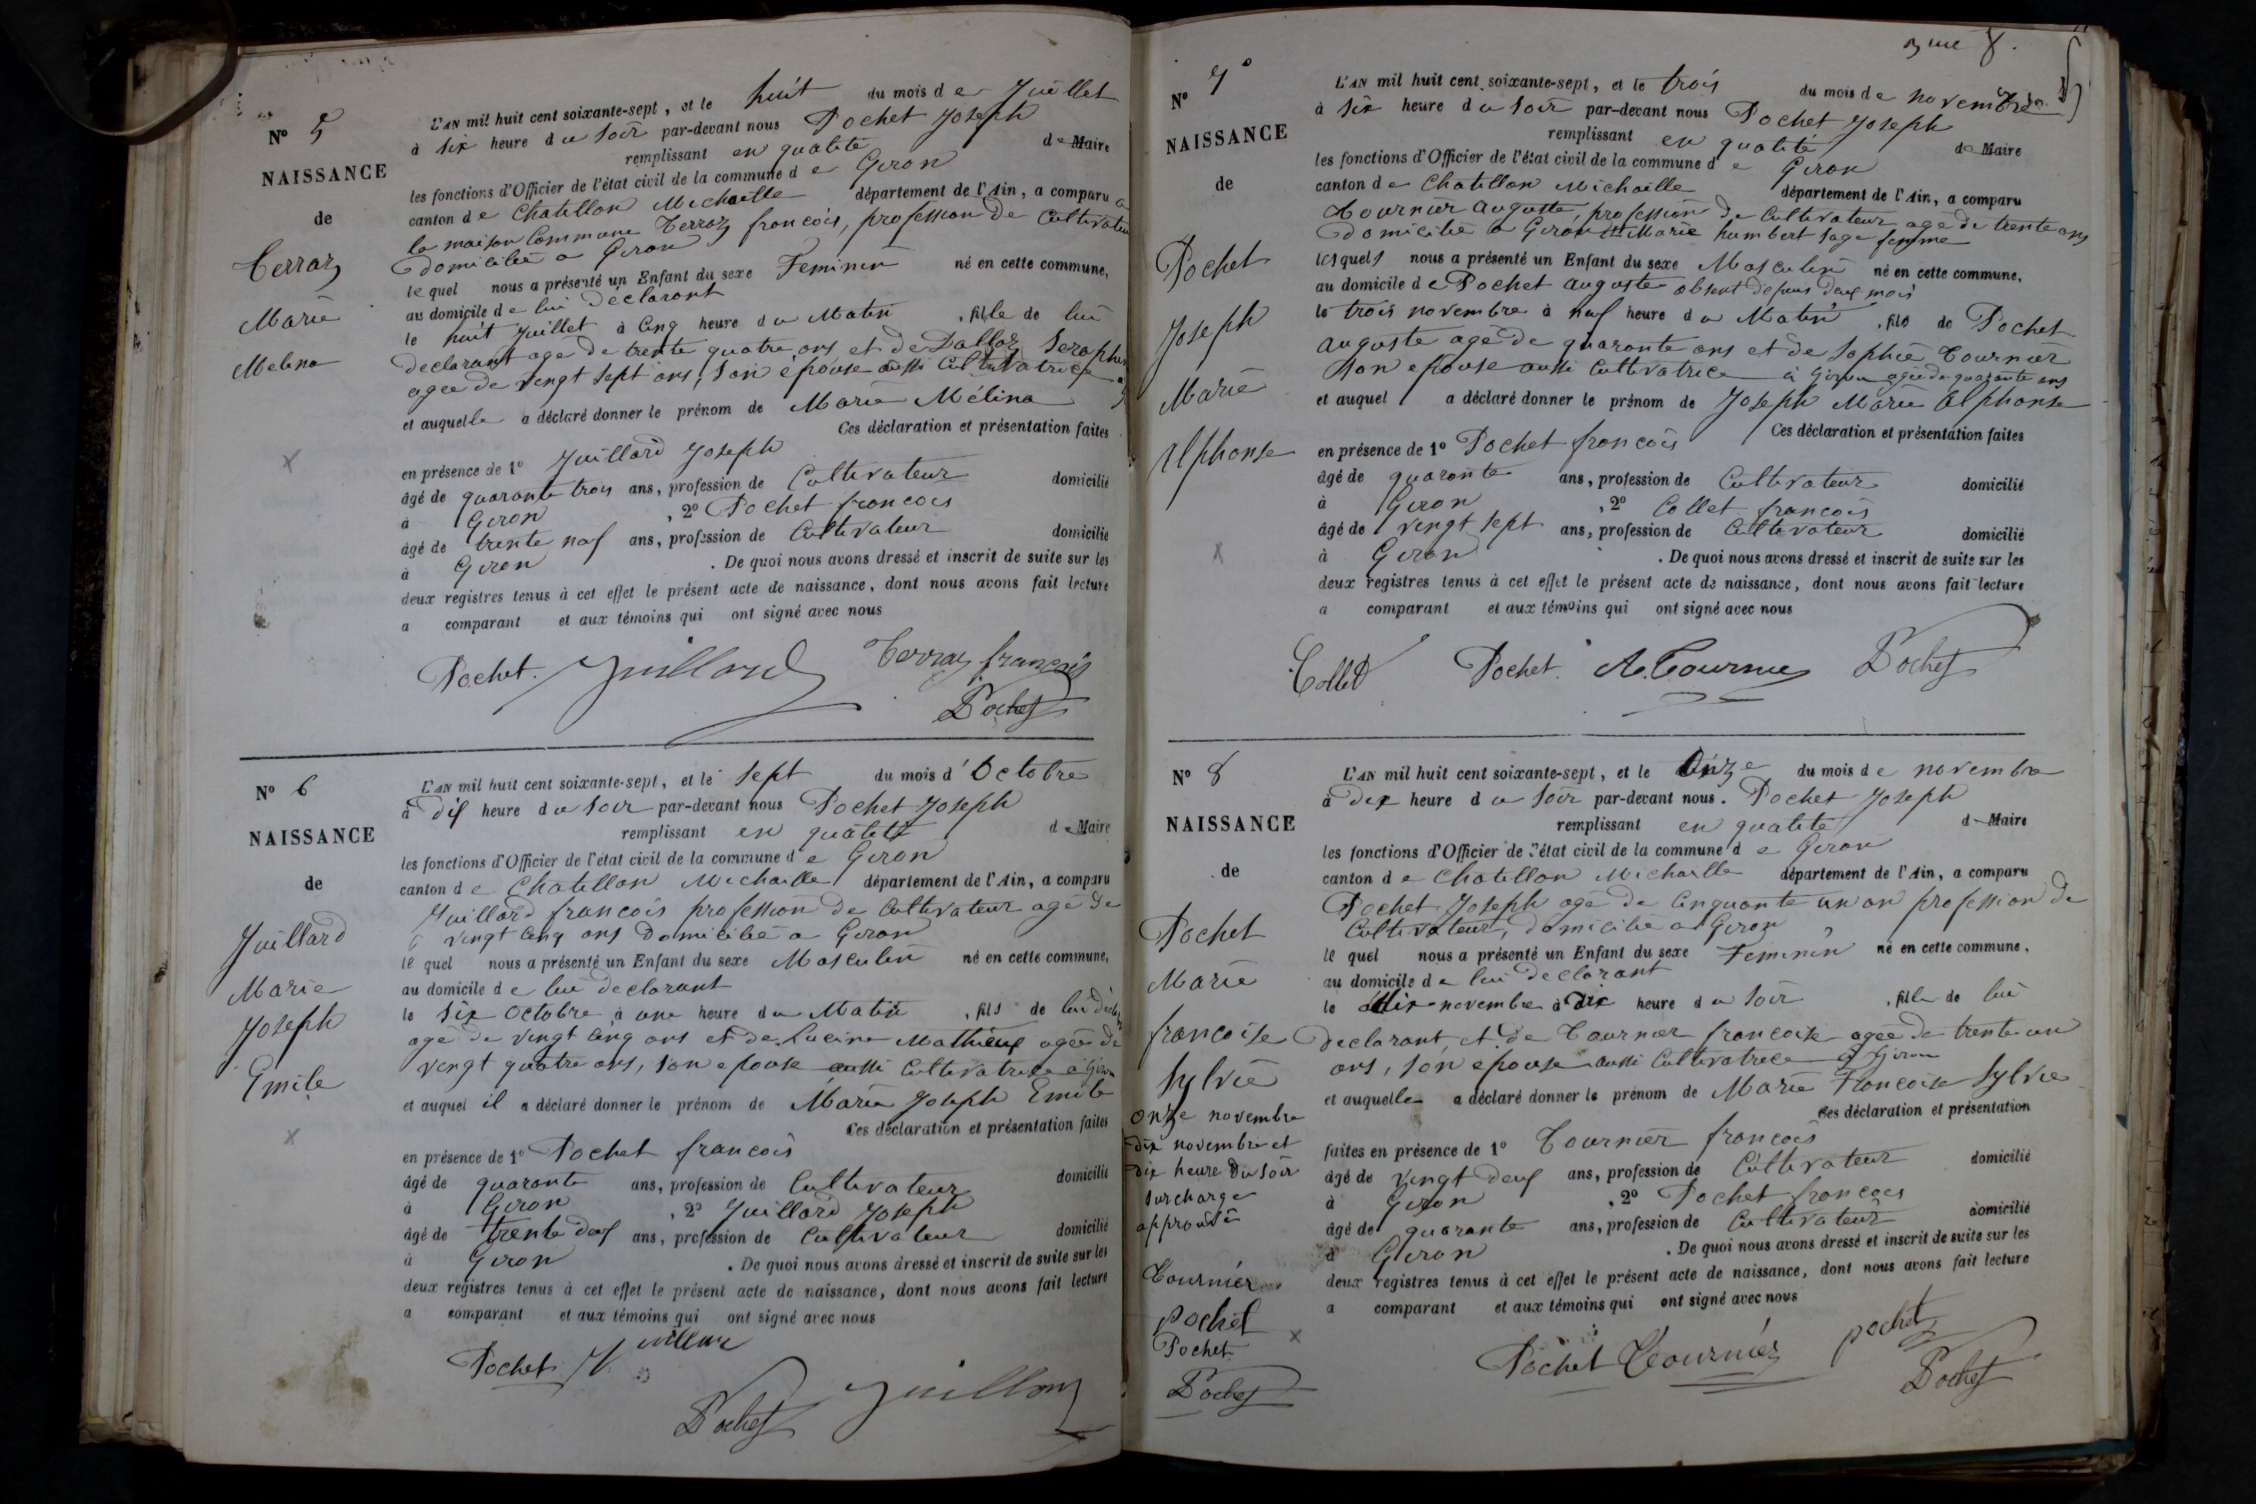 N° 5
NAISSANCE
de
Terraz
Marie
Melina
L'AN mil huit cent soixante-sept, et le huit du mois de Juillet
à six heure du soir par-devant nous Pochet Joseph
remplissant en qualité de Maire
les fonctions d'Officier de l'état civil de la commune de Giron
canton de Chatillon Michaille département de l'Ain, a comparu a
la maison Commune Terraz francois, profession de Cultivateur
domicilié a Giron
lequel nous a présenté un Enfant du sexe Feminin né en cette commune,
au domicile de lui déclarant
le huit Juillet à Cinq heure du Matin, fille de lui
declarant agé de trente quatre ans et de Dalloz Seraphine
agée de vingt sept ans, son épouse aussi Cultivatrice
et auquelle a déclaré donner le prénom de Marie Mélina
Ces déclaration et présentation faites
en présence de 1° Juillard Joseph
âgé de quarante trois ans, profession de Cultivateur domicilié
à Giron, 2° Pochet francois
âgé de trente nef ans, profession de Cultivateur domicilié
à Giron. De quoi nous avons dressé et inscrit de suite sur les
deux registres tenus à cet effet le présent acte de naissance, dont nous avons fait lecture
a comparant et aux témoins qui ont signé avec nous
Pochet. Juillard Terraz françois
Pochet
N° 6
NAISSANCE
de
Juillard
Marie
Joseph
Emile
L'AN mil huit cent soixante-sept, et le sept du mois d'Octobre
à dix heure du soir par-devant nous Pochet Joseph
remplissant en qualité de Maire
les fonctions d'Officier de l'état civil de la commune de Giron
canton de Chatillon Michaille département de l'Ain, a comparu
Juillard francois profession de Cultivateur agé de
vingt Cinq ans Domicilié a Giron
lequel nous a présenté un Enfant du sexe Masculin né en cette commune,
au domicile de lui declarant
le six Octobre à une heure du Matin, fils de lui
agé de vingt Cinq ans et de Lucine Mathieux agée de
vingt quatre ans, son epouse aussi Cultivatrice à Giron
et auquel il a déclaré donner le prénom de Marie Joseph Emile
Ces déclaration et présentation faites
en présence de 1° Pochet francois
âgé de quarante ans, profession de Cultivateur domicilié
à Giron, 2° Juillard Joseph
âgé de trente deux ans, profession de Cultivateur domicilié
à Giron. De quoi nous avons dressé et inscrit de suite sur les
deux registres tenus à cet effet le présent acte de naissance, dont nous avons fait lecture
a comparant et aux témoins qui ont signé avec nous
Pochet
Pochet Juillard
N° 7
NAISSANCE
de
Pochet
Joseph
Marie
Alphonse
L'AN mil huit cent soixante-sept, et le trois du mois de novembre
à six heure du soir par-devant nous Pochet Joseph
remplissant en qualité de Maire
les fonctions d'Officier de l'état civil de la commune de Giron
canton de Chatillon Michaille département de l'Ain, a comparu
Tournier Auguste, profession de Cultivateur agé de trente ans
domicilié a Giron et Marie humbert sage femme
lesquels nous a présenté un Enfant du sexe Masculin né en cette commune,
au domicile de Pochet auguste absent depuis deux mois
le trois novembre à nef heure du Matin, fils de Pochet
Auguste agé de quarante ans et de Sophie Tournier
son epouse aussi Cultivatrice à Giron agée de quarante ans
et auquel a déclaré donner le prénom de Joseph Marie Alphonse
Ces déclaration et présentation faites
en présence de 1° Pochet francois
âgé de quarante ans, profession de Cultivateur domicilié
à Giron, 2° Collet francois
âgé de vingt sept ans, profession de Cultivateur domicilié
à Giron. De quoi nous avons dressé et inscrit de suite sur les
deux registres tenus à cet effet le présent acte de naissance, dont nous avons fait lecture
a comparant et aux témoins qui ont signé avec nous
Collet Pochet. A. Tournier Pochet
N° 8
NAISSANCE
de
Pochet
Marie
francoise
Sylvie
Onze novembre
dix novembre et
dix heure du soir
surcharge
approuvé
Tournier
pochet
Pochet
Pochet
L'AN mil huit cent soixante-sept, et le Onze du mois de novembre
à dix heure du soir par-devant nous. Pochet Joseph
remplissant en qualité de Maire
les fonctions d'Officier de l'état civil de la commune de Giron
canton de Chatillon Michaille département de l'Ain, a comparu
Pochet Joseph agé de Cinquante un an profession de
Cultivateur, domicilié a Giron
lequel nous a présenté un Enfant du sexe Feminin né en cette commune,
au domicile de lui declarant
le dix novembre à dix heure du soir, fille de lui
declarant, et de Tournier francoise agée de trente un
ans, son epouse aussi Cultivatrice à Giron
et auquelle a déclaré donner le prénom de Marie Francoise Sylvie
Ces déclaration et présentation
faites en présence de 1° Tournier francois
âgé de vingt deux ans, profession de Cultivateur domicilié
à Giron, 2° Pochet francois
âgé de quarante ans, profession de Cultivateur domicilié
à Giron. De quoi nous avons dressé et inscrit de suite sur les
deux registres tenus à cet effet le présent acte de naissance, dont nous avons fait lecture
a comparant et aux témoins qui ont signé avec nous
Pochet Tournier pochet
Pochet